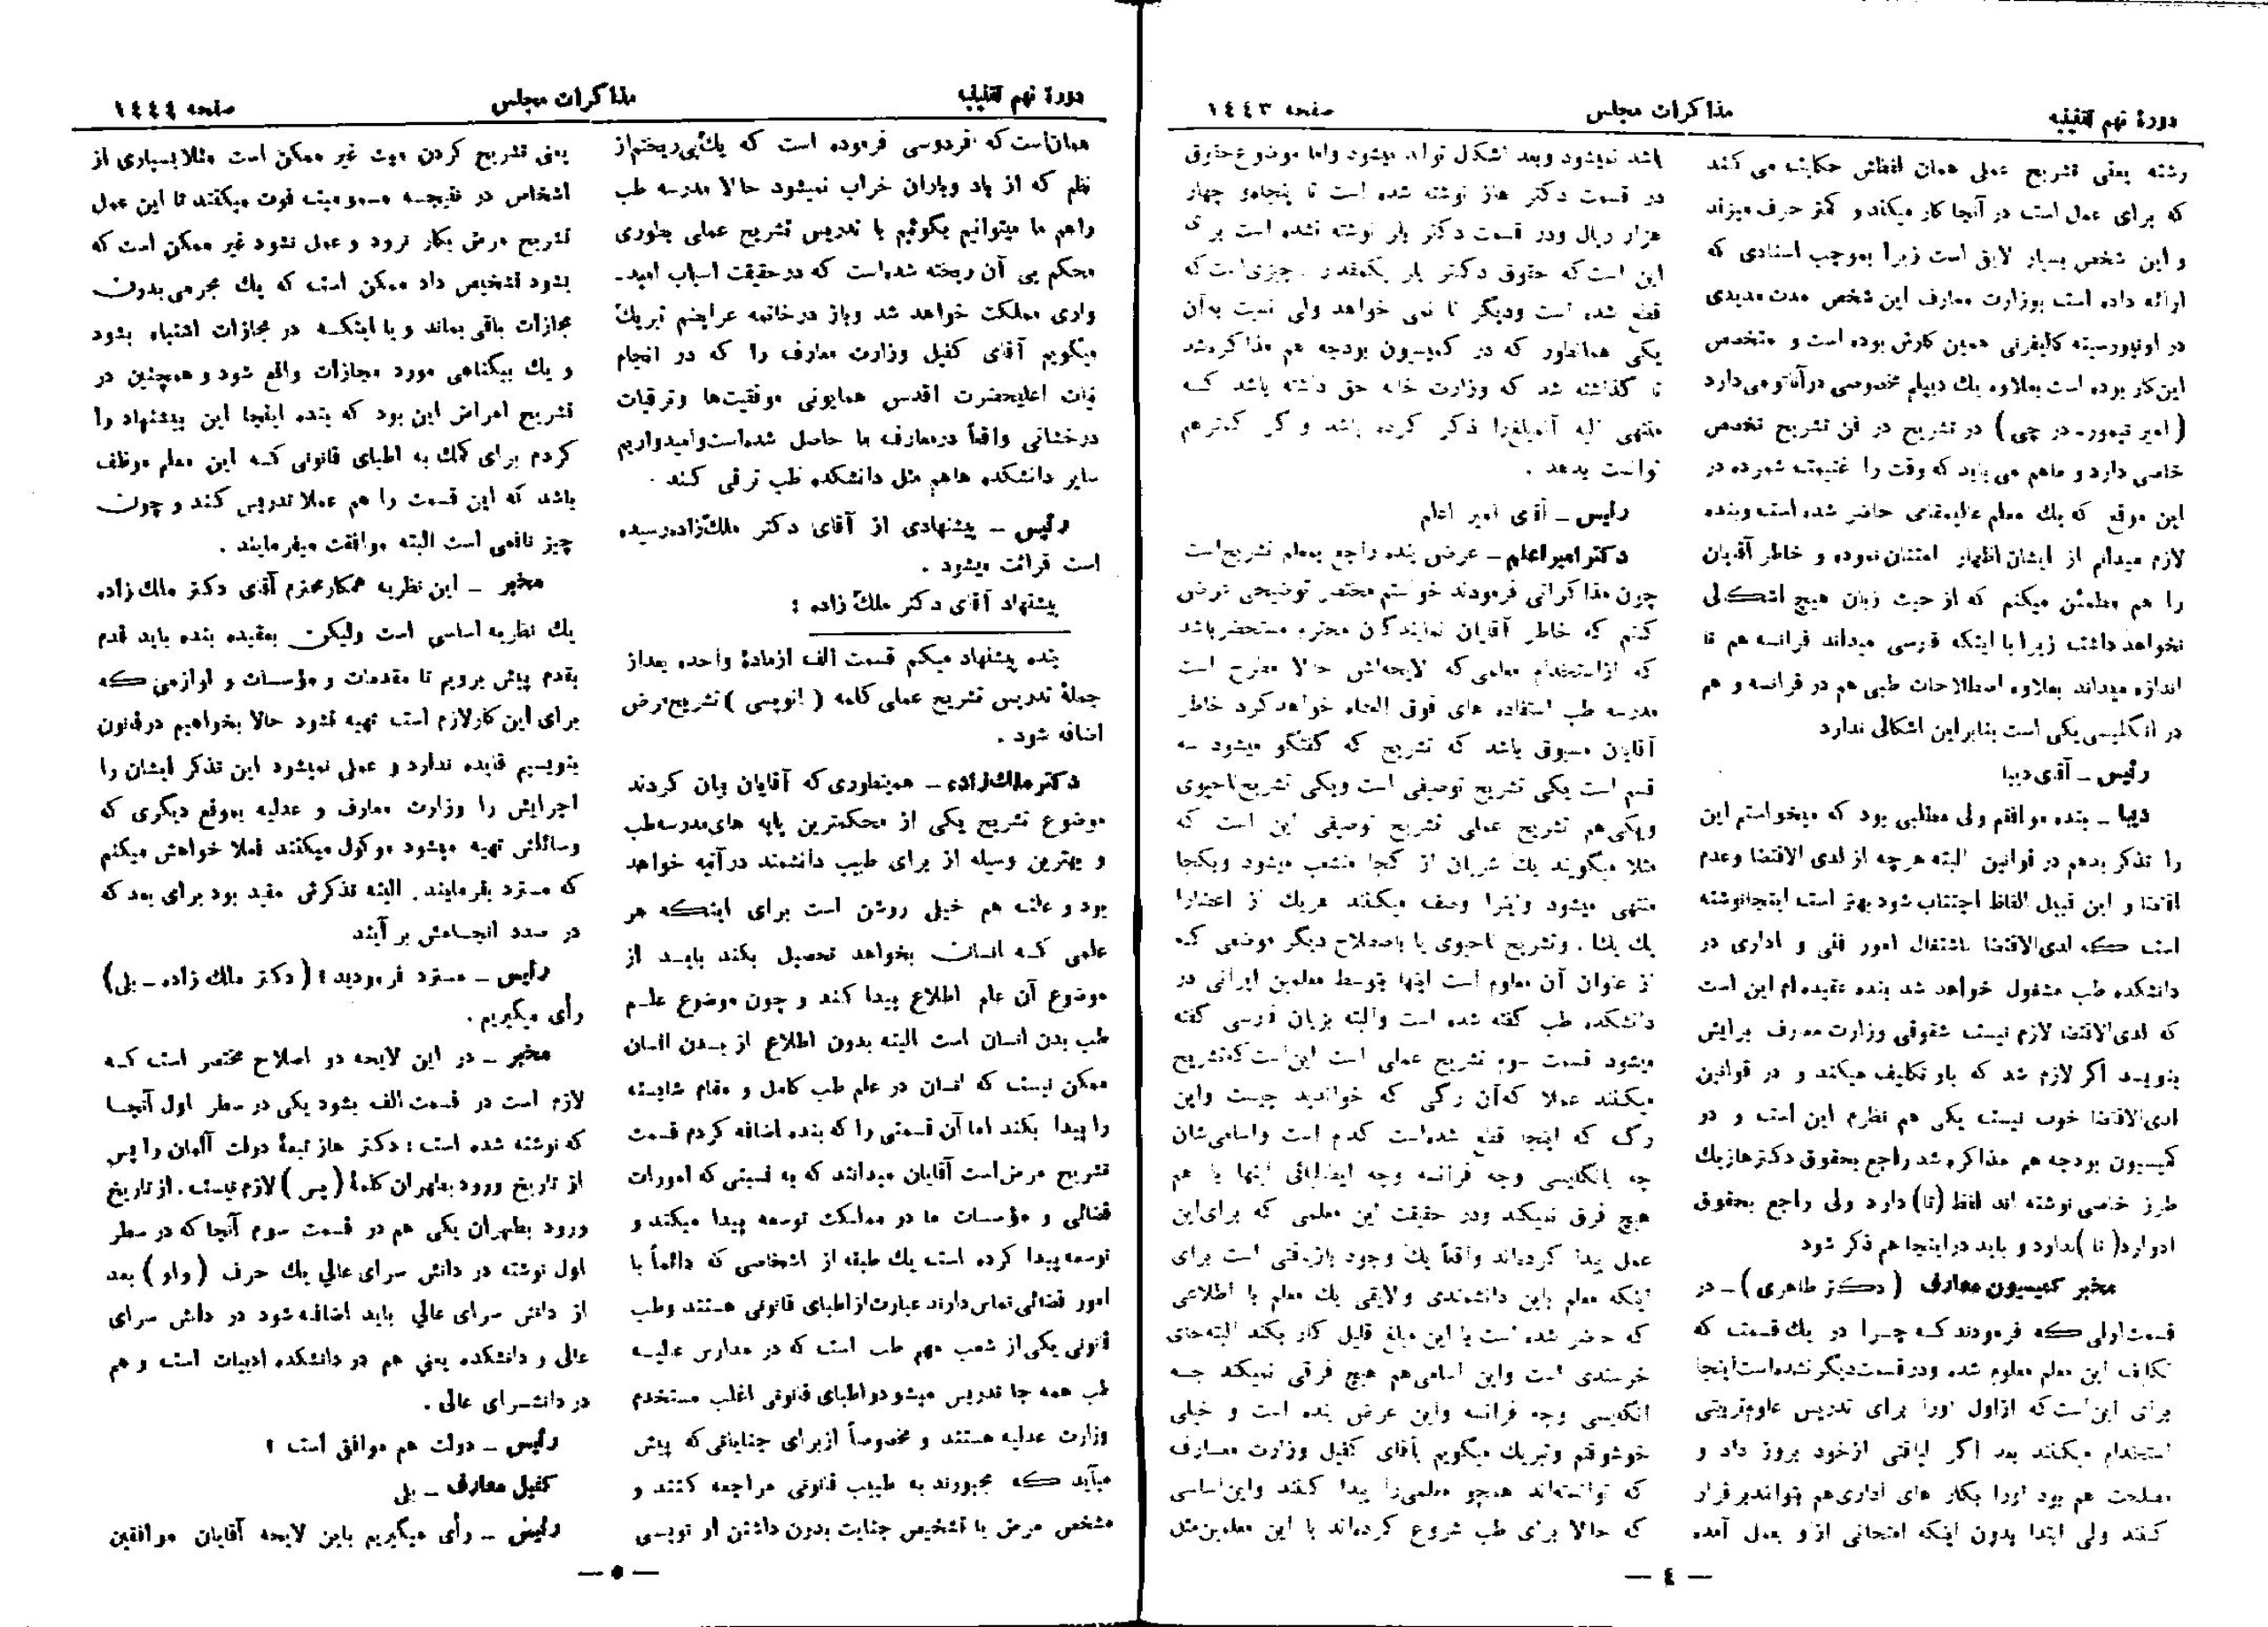 دورهٔ نهم تقنینیه
مذاکرات مجلس
صفحه ١٤٤٣
رشته یعنی تشریح عملی همان لفظش حکایت می کند
که برای عمل است در آنجا کار میکند و کمتر حرف میزند
و این شخص بسیار لایق است زیرا بموجب اسنادی که
ارائه داده است بوزارت معارف این شخص مدت مدیدی
در اونیورسیته کالیفرنی همین کارش بوده است و متخصص
این کار بوده است بعلاوه یك دیپلم مخصوصی در آناتومی دارد
در تشریح در فن تشریح تخصص
خاصی دارد و ماهم می باید که وقت را غنیمت شمرده در
این موقع که یك معلم عالیمقامی حاضر شده است و بنده
لازم میدانم از ایشان اظهار امتنان نموده و خاطر آقایان
را هم مطمئن میکنم که از حیث زبان هیچ اشکالی
نخواهد داشت زیرا با اینکه فارسی میداند فرانسه هم تا
اندازه میداند بعلاوه اصطلاحات طبی هم در فرانسه و هم
در انگلیسی یکی است بنابراین اشکالی ندارد
رئیس ـ آقای دیبا
دیبا ـ بنده موافقم ولی مطلبی بود که میخواستم این
را تذکر بدهم در قوانین البته هرچه از لدی الاقتضا وعدم
اقتضا و این قبیل الفاظ اجتناب شود بهتر است اینجا نوشته
است که لدی‌الاقتضا باشتغال امور فنی و اداری در
دانشکده طب مشغول خواهد شد بنده عقیده‌ام این است
که لدی‌الاقتضا لازم نیست شقوقی وزارت معارف برایش
بنویسد اگر لازم شد که باو تکلیف میکند و در قوانین
لدی‌الاقتضا خوب نیست یکی هم نظرم این است و در
کمیسیون بودجه هم مذاکره شد راجع بحقوق دکتر هاز یك
طرز خاصی نوشته اند لفظ (تا) دارد ولی راجع بحقوق
ادوارد (تا) ندارد و باید در اینجا هم ذکر شود
مخبر کمیسیون معارف (دکتر طاهری) ـ در
قسمت اولی که فرمودند که چرا در یك قسمت که
تکلیف این معلم معلوم شده و در قسمت دیگر نشده است اینجا
برای این است که از اول او را برای تدریس علوم تربیتی
استخدام میکنند بعد اگر لیاقتی از خود بروز داد و
مصلحت هم بود او را بکار های اداری هم بتوانند برقرار
کنند ولی ابتدا بدون اینکه امتحانی از او بعمل آمده
باشد نمیشود و بعد اشکال تولید میشود و اما موضوع حقوق
در قسمت دکتر هاز نوشته شده است تا پنجاه و چهار
هزار ریال و در قسمت دکتر بلر نوشته نشده است برای
این است که حقوق دکتر بلر یکمقدار چیزی است که
قطع شده است و دیگر تا نمی خواهد ولی نسبت به آن
یکی همانطور که در کمیسیون بودجه هم مذاکره شد
تا گذاشته شد که وزارت خانه حق داشته باشد که
منتهی الیه آنمبلغ را ذکر کرده باشد و اگر کمتر هم
توانست بدهد .
رئیس ـ آقای امیر اعلم
دکتر امیر اعلم ـ عرض بنده راجع بمعلم تشریح است
چون مذاکراتی فرمودند خواستم مختصر توضیحی عرض
کنم که خاطر آقایان نمایندگان محترم مستحضر باشد
که از استخدام معلمی که لایحه‌اش حالا مطرح است
مدرسه طب استفاده های فوق العاده خواهد کرد خاطر
آقایان مسبوق باشد که تشریح که گفتگو میشود سه
قسم است یکی تشریح توصیفی است و یکی تشریح ناحیوی
و یکی هم تشریح عملی تشریح توصیفی این است که
مثلا میگویند یك شریان از کجا منشعب میشود و بکجا
منتهی میشود و اینرا وصف میکنند هر یك از اعضا را
یك یك . و تشریح ناحیوی یا باصطلاح دیگر موضعی که
از عنوان آن معلوم است اینها بتوسط معلمین ایرانی در
دانشکده طب گفته شده است و البته بزبان فارسی گفته
میشود قسمت سوم تشریح عملی است این است که تشریح
میکنند عملا که آن رگی که خواندید چیست و این
رگ که اینجا قطع شده است کدام است و اسامی‌شان
چه بانگلیسی و چه فرانسه و چه ایطالیائی اینها با هم
هیچ فرق نمیکند و در حقیقت این معلمی که برای این
عمل پیدا کرده‌اند واقعاً یك وجود با ارزشی است برای
اینکه معلم باین دانشمندی و لایقی یك معلم با اطلاعی
که حاضر شده است با این مبلغ قلیل کار بکند البته جای
خرسندی است و این اسامی هم هیچ فرقی نمیکند چه
انگلیسی و چه فرانسه و این عرض بنده است و خیلی
خوشوقتم و تبریك میگویم بآقای کفیل وزارت معارف
که توانسته‌اند همچو معلمی را پیدا کنند و این اساسی
که حالا برای طب شروع کرده‌اند با این معلمین مثل
ـ ٤ ـ
دورهٔ نهم تقنینیه
مذاکرات مجلس
صفحه ١٤٤٤
همان است که فردوسی فرموده است که یك پی ریختم از
نظم که از باد و باران خراب نمیشود حالا مدرسه طب
را هم ما میتوانیم بگوئیم با تدریس تشریح عملی بطوری
محکم پی آن ریخته شده است که در حقیقت اسباب امید ـ
واری مملکت خواهد شد و باز در خاتمه عرایضم تبریك
میگویم آقای کفیل وزارت معارف را که در انجام
نیات اعلیحضرت اقدس همایونی موفقیت‌ها و ترقیات
درخشانی واقعاً در معارف ما حاصل شده است و امیدواریم
سایر دانشکده هاهم مثل دانشکده طب ترقی کند .
رئیس ـ پیشنهادی از آقای دکتر ملك زاده رسیده
است قرائت میشود .
پیشنهاد آقای دکتر ملك زاده :
بنده پیشنهاد میکنم قسمت الف از مادهٔ واحده بعد از
جملهٔ تدریس تشریح عملی کلمه ( اتوپسی ) تشریح مرض
اضافه شود .
دکتر ملك‌زاده ـ همینطوری که آقایان بیان کردند
موضوع تشریح یکی از محکمترین پایه های مدرسه طب
و بهترین وسیله از برای طبیب دانشمند در آتیه خواهد
بود و علت هم خیلی روشن است برای اینکه هر
علمی که انسان بخواهد تحصیل بکند باید از
موضوع آن علم اطلاع پیدا کند و چون موضوع علم
طب بدن انسان است البته بدون اطلاع از بدن انسان
ممکن نیست که انسان در علم طب کامل و مقام شایسته
را پیدا بکند اما آن قسمتی را که بنده اضافه کردم قسمت
تشریح مرض است آقایان میدانند که به نسبتی که امورات
قضائی و مؤسسات ما در مملکت توسعه پیدا میکند و
توسعه پیدا کرده است یك طبقه از اشخاصی که دائماً با
امور قضائی تماس دارند عبارت از اطبای قانونی هستند و طب
قانونی یکی از شعب مهم طب است که در مدارس عالیه
طب همه جا تدریس میشود و اطبای قانونی اغلب مستخدم
وزارت عدلیه هستند و مخصوصاً از برای جنایاتی که پیش
میآید که مجبورند به طبیب قانونی مراجعه کنند و
مشخص مرض یا تشخیص جنایت بدون داشتن اوتوپسی
یعنی تشریح کردن میت غیر ممکن است مثلا بسیاری از
اشخاص در نتیجه مسمومیت فوت میکنند تا این عمل
تشریح مرض بکار نرود و عمل نشود غیر ممکن است که
بشود تشخیص داد ممکن است که یك مجرمی بدون
مجازات باقی بماند و یا اینکه در مجازات اشتباه بشود
و یك بیگناهی مورد مجازات واقع شود و همچنین در
تشریح امراض این بود که بنده اینجا این پیشنهاد را
کردم برای کمك به اطبای قانونی که این معلم موظف
باشد که این قسمت را هم عملا تدریس کند و چون
چیز نافعی است البته موافقت میفرمایند .
مخبر ـ این نظریه همکار محترم آقای دکتر ملك زاده
یك نظریه اساسی است ولیکن بعقیده بنده باید قدم
بقدم پیش برویم تا مقدمات و مؤسسات و لوازمی که
برای این کار لازم است تهیه نشود حالا بخواهیم در قانون
بنویسیم فایده ندارد و عملی نمیشود این تذکر ایشان را
اجرایش را وزارت معارف و عدلیه بموقع دیگری که
وسائلش تهیه میشود موکول میکنند فعلا خواهش میکنم
که مسترد بفرمایند . البته تذکرش مفید بود برای بعد که
در صدد انجامش بر آیند
رئیس ـ مسترد فرمودید ؟ (دکتر ملك زاده ـ بلی)
رأی میگیریم .
مخبر ـ در این لایحه دو اصلاح مختصر است که
لازم است در قسمت الف بشود یکی در سطر اول آنجا
که نوشته شده است : دکتر هاز تبعهٔ دولت آلمان را پس
از تاریخ ورود بطهران کلمهٔ (پس) لازم نیست . از تاریخ
ورود بطهران یکی هم در قسمت سوم آنجا که در سطر
اول نوشته در دانش سرای عالی یك حرف (واو) بعد
از دانش سرای عالی باید اضافه شود در دانش سرای
عالی و دانشکده یعنی هم در دانشکده ادبیات است و هم
در دانشسرای عالی .
رئیس ـ دولت هم موافق است ؟
کفیل معارف ـ بلی
رئیس ـ رأی میگیریم باین لایحه آقایان موافقین
ـ ٥ ـ